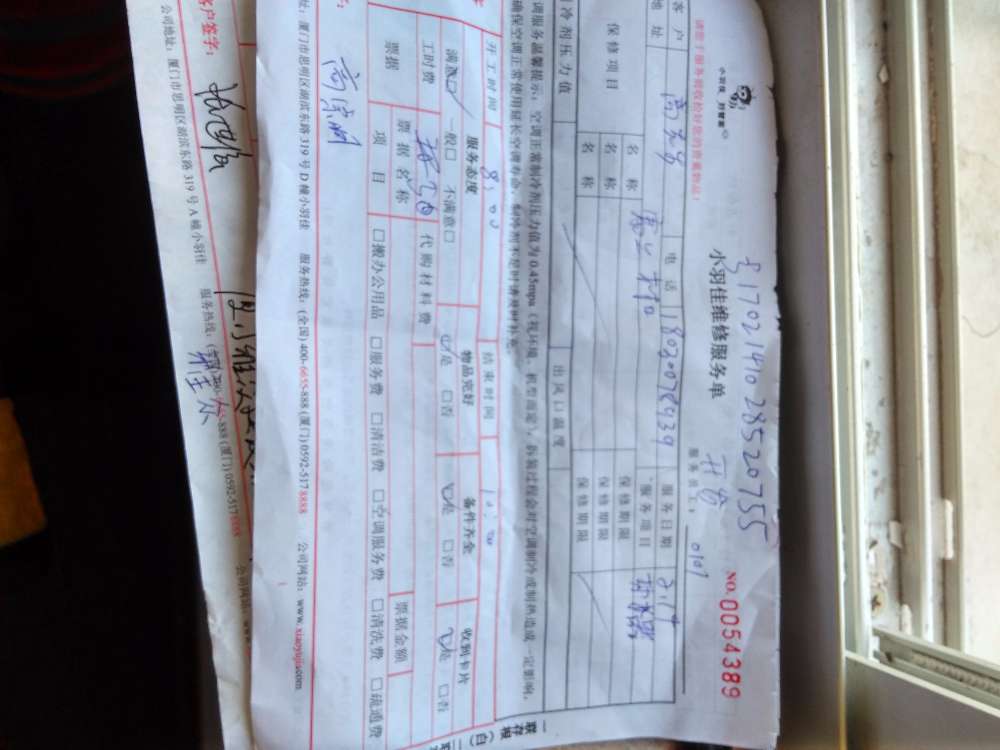 31702141028520755
小羽佳 好管家
小羽佳维修服务单
NO. 0054389
请您于服务前收检好您的贵重物品!
服务员工: 0101
客户 电话 18030078939 服务日期 2.15
地址 服务项目
保修项目 名称 保修期限
名称 保修期限
制冷剂压力值 出风口温度
调服务温馨提示:空调正常制冷剂压力值为0.45mpa(视环境、机型而定),拆装过程会对空调制冷或制热造成一定影响,
确保空调正常使用延长空调寿命,制冷剂不足时请及时补充。
开工时间 8:00 结束时间 10:00
服务态度 物品完好 备件齐全 收到卡片
满意☑ 一般□ 不满意□ ☑是 □否 ☑是 □否 ☑是 □否
工时费 代购材料费
票据 票据名称 票据金额
项目 □搬办公用品 □服务费 □清洁费 □空调服务费 □清洗费 □疏通费
址:厦门市思明区湖滨东路319号D幢小羽佳 服务热线:(全国)400-6655-888 (厦门)0592-5178888 公司网站:www.xiaoyujia.com
一联存根(白)
客户签字:
公司地址:厦门市思明区湖滨东路319号A幢小羽佳 服务热线: -888 (厦门)0592-5178888 公司网站:www.